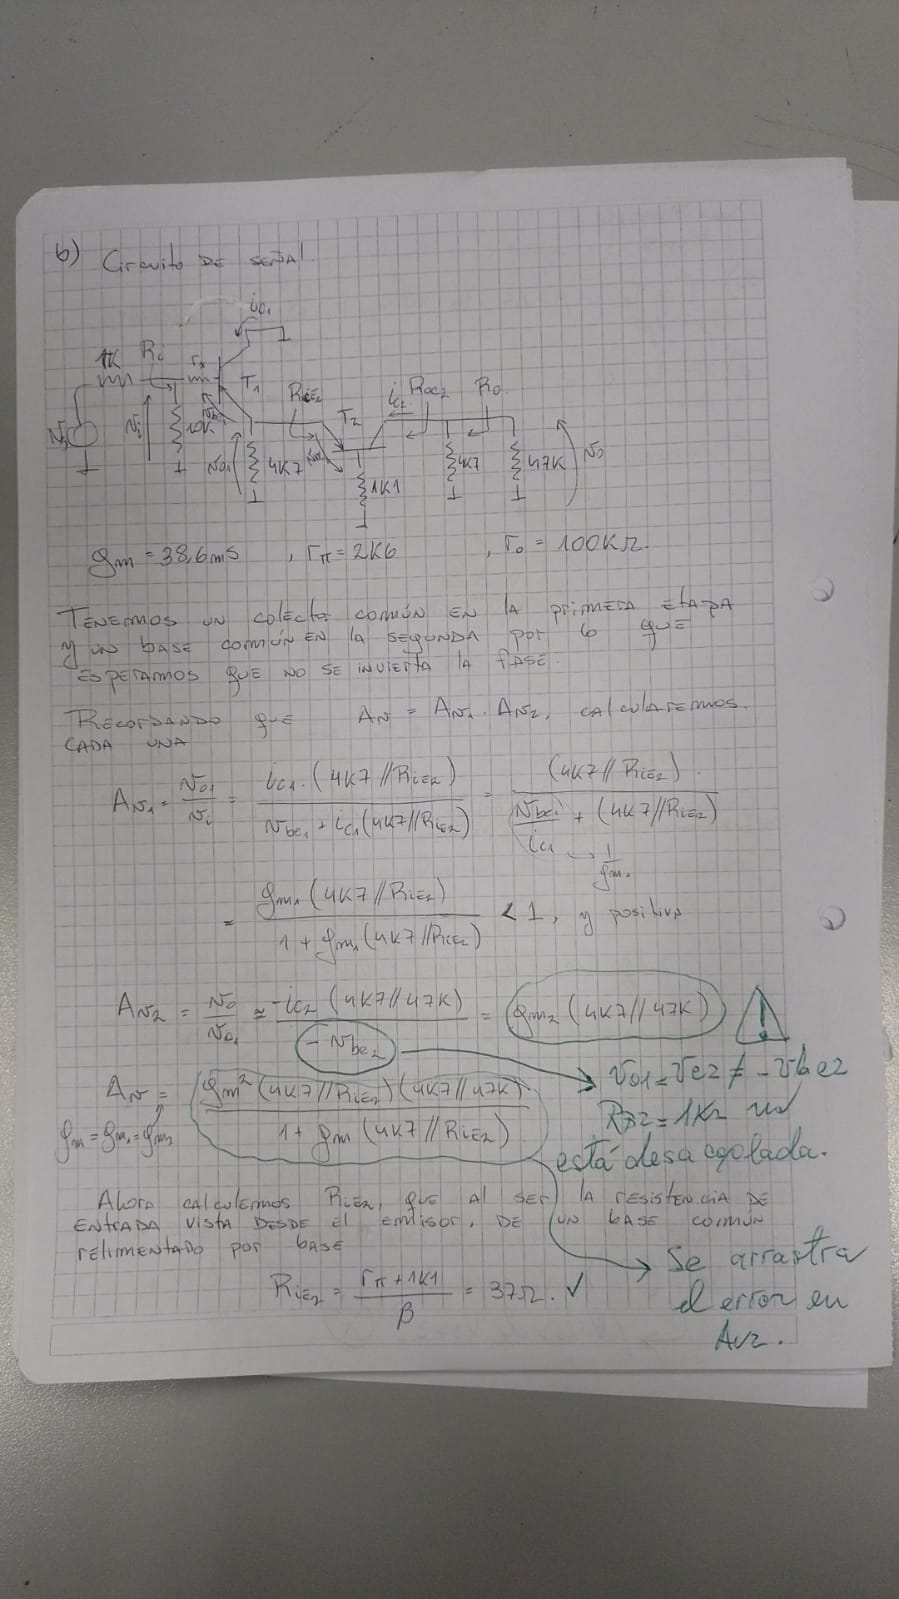 b) Circuito DE SEÑAL
ic1
1K Ri rx T1 RiE2 T2 ic2 Roc2 Ro
Vi 10K Vo1 4K7 1K1 4K7 47K Vo
gm = 38,6mS , rπ = 2K6 , ro = 100KΩ.
TENEMOS UN colector común EN la primera Etapa
y un base común EN la segunda por lo que
ESPERAMOS que NO SE INVIERTA la fase.
Recordando que Av = Av1 . Av2, calcularemos
CADA UNA
Av1 = Vo1/Vi = ic1.(4K7//RiE2) / Vbe1 + ic1(4K7//RiE2) = (4K7//RiE2). / Vbe1/ic1 + (4K7//RiE2)
1/gm1
= gm1(4K7//RiE2) / 1 + gm1(4K7//RiE2) < 1, y positiva
Av2 = Vo/Vo1 ≈ -ic2(4K7//47K) / -Vbe2 = gm2(4K7//47K) !
Vo1 = Ve2 ≠ -Vbe2
Av = gm²(4K7//RiE2)(4K7//47K) / 1 + gm(4K7//RiE2)
gm = gm1 = gm2
RB2 = 1K1 no
está desacoplada.
Ahora calculemos RiE2, que al ser la resistencia DE
ENTRADA VISTA DESDE El emisor, DE UN base común
relimentado por base
RiE2 = rπ + 1K1 / β = 37Ω. ✓
Se arrastra
el error en
Av2.